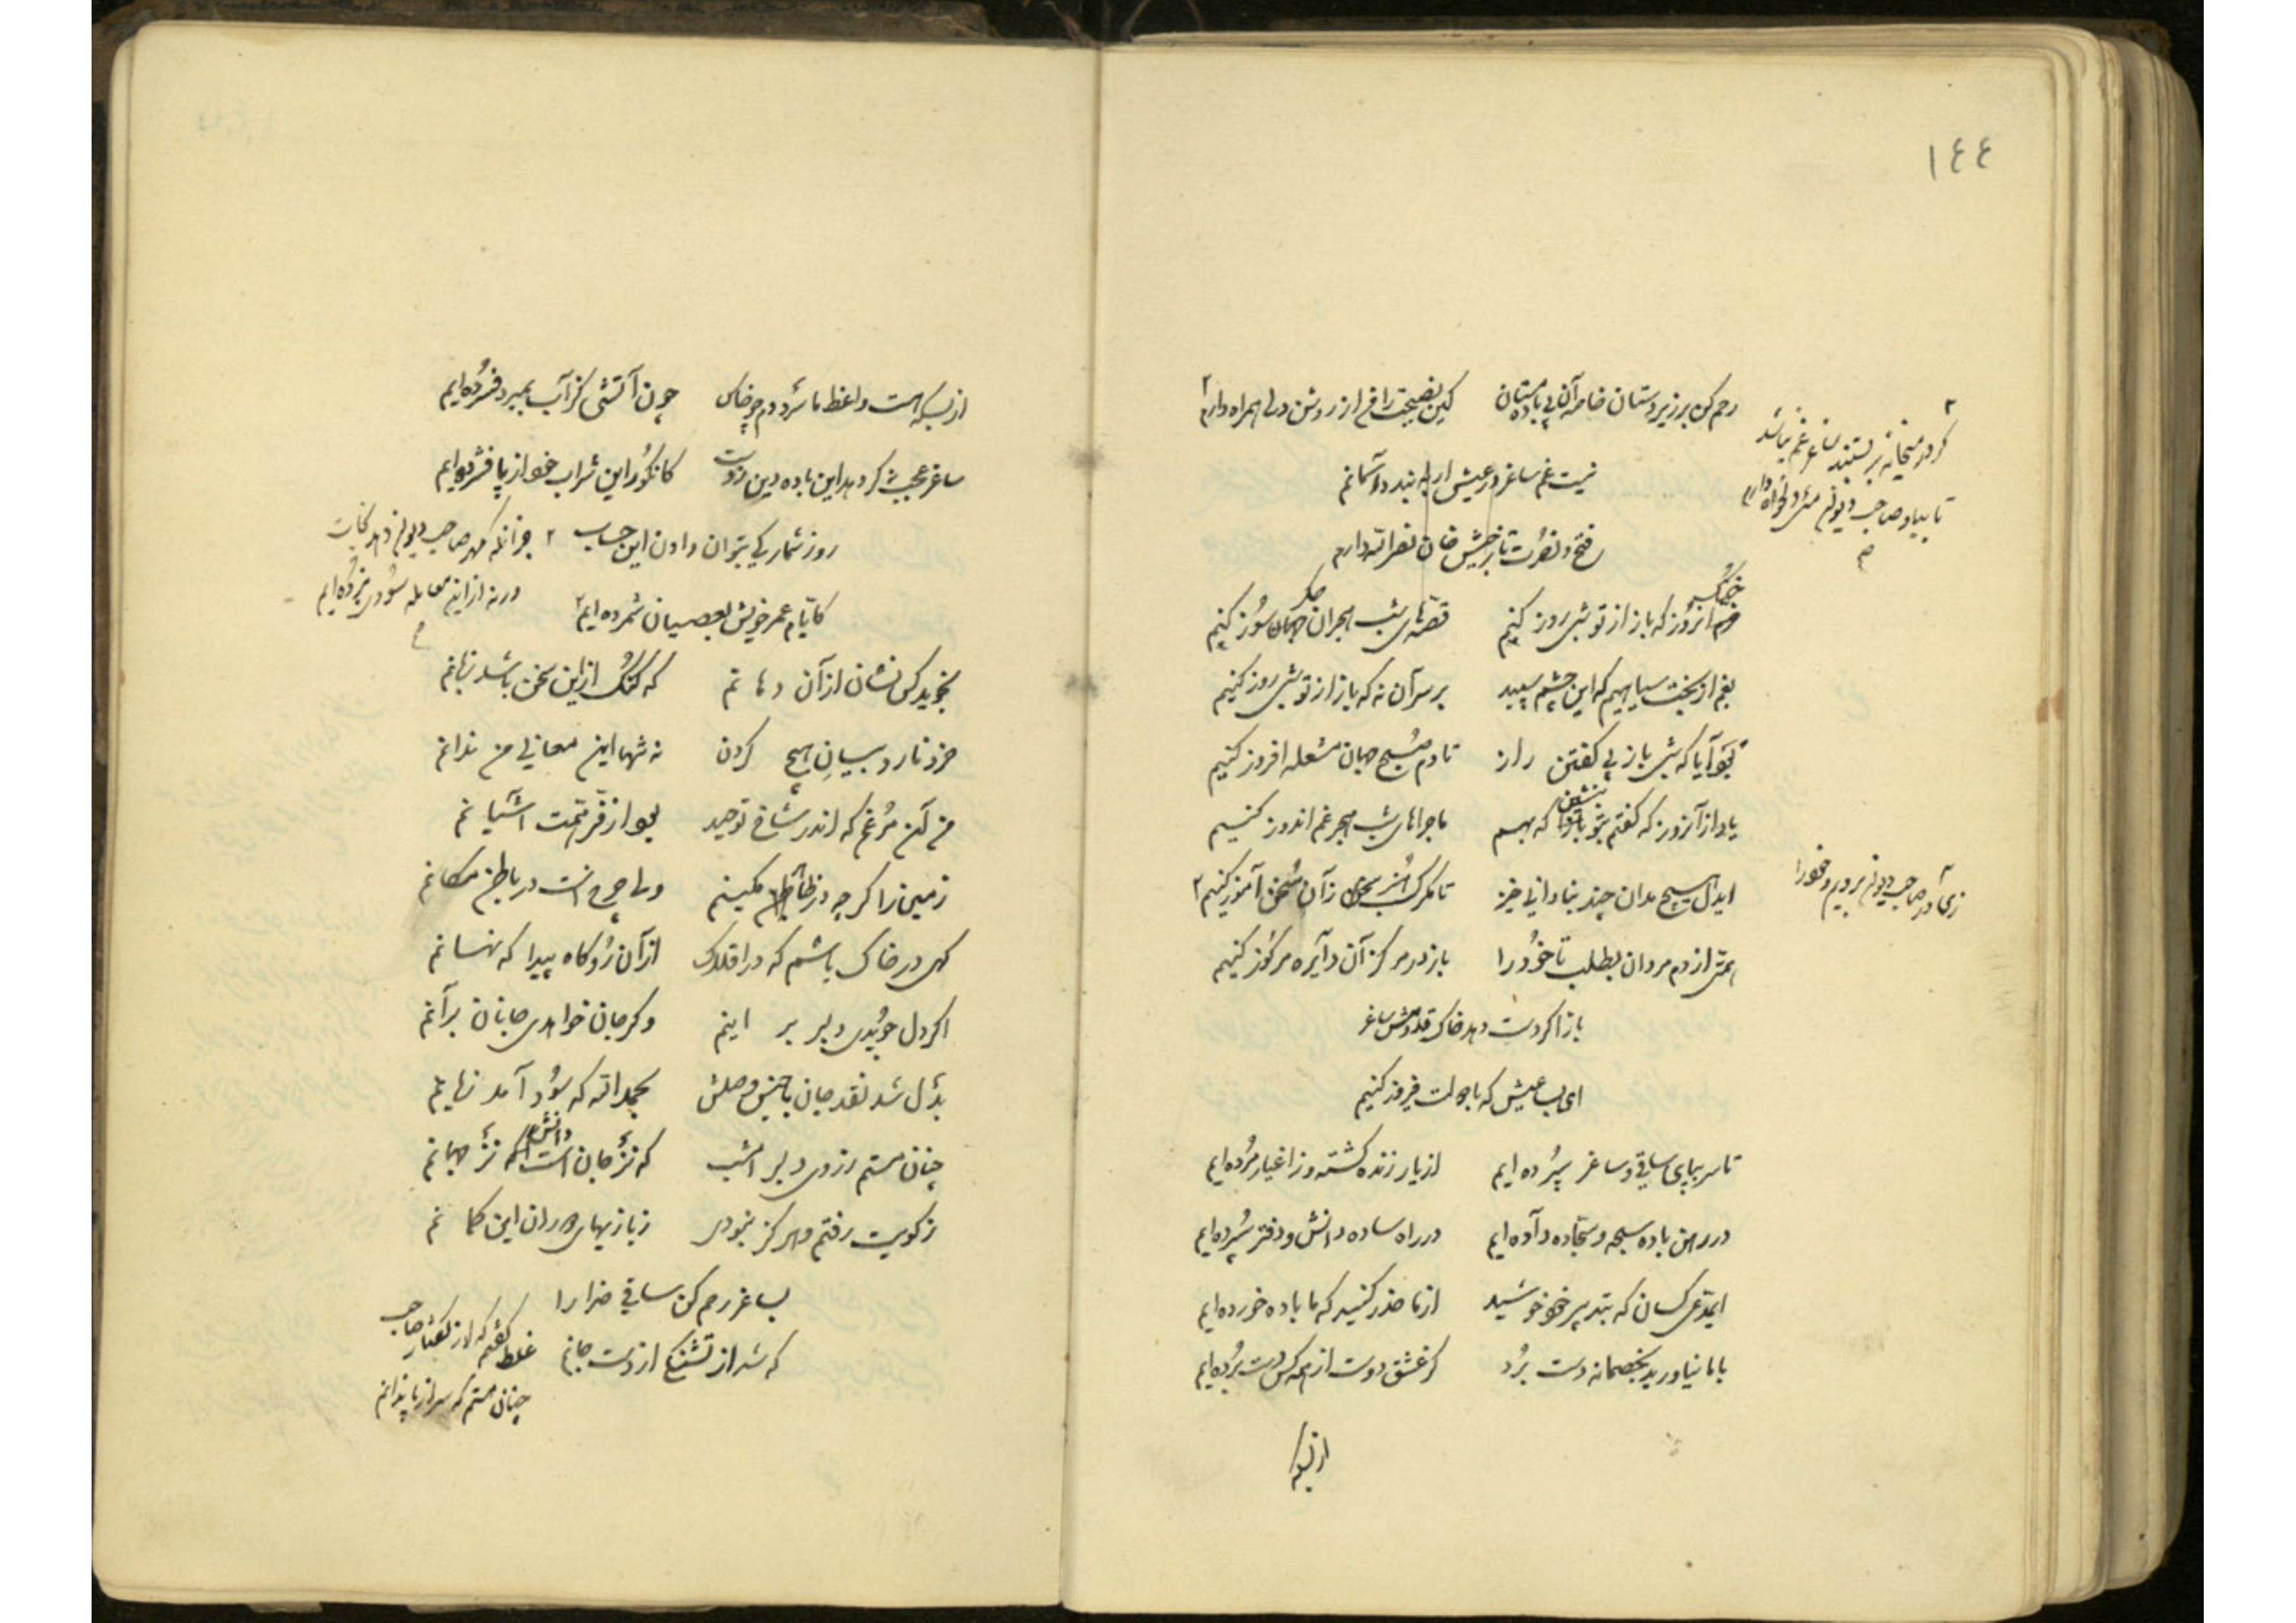 ١٤٤
رحم کن بر زیردستان خاصه آن بی باده مستان
کین نصیحت را من از روشن دلی همراه دارم ۲
۲ گر در میخانه بر بستند ساغر غم نباشد
تا بیاد صاحب دیوان می دلخواه دارم
نیست غم ساغر در عیش ار به بندد آسمانم
فتح و نصرت تا ز خان نصر الله دارم
خرم آنروز که باز از تو شبی روز کنیم
قصه های شب هجران جهان سوز کنیم
بغم از بخت سیاهیم که این چشم سپید
بر سر آن نه که باز از تو شبی روز کنیم
تو آیا که شبی باز پی گفتن راز
تا دم صبح جهان مشعله افروز کنیم
یاد از آنروز که گفتم بتو بنشین که بهم
ماجراهای شب هجر غم اندوز کنیم
ایدل هیچ مدان چند بنادانی خیز
تا مگر کسب هنر زآن سخن آموز کنیم ۲
زی در صاحب دیوان برویم و خود را
همتی از دم مردان بطلب تا خود را
باز در مرکز آن دایره مرکوز کنیم
باز اگر دست دهد خاک قدومش ساغر
ای بسا عیش که با دولت فیروز کنیم
تا سر بپای ساقی و ساغر سپرده ایم
از یار زنده گشته وز اغیار مرده ایم
در رهن باده سبحه و سجاده داده ایم
در راه ساده دانش و دفتر سپرده ایم
ایمدعی کسان که بتدبیر خود خوشید
از ما حذر کنید که ما باده خورده ایم
با ما نیاورید بخصمانه دست برد
کز عشق دوست از همه کس دست برده ایم
از بسکه
از بسکه هست واعظ ما سرد دم چو خاک
چون آتشی کز آب بمیرد فسرده ایم
ساغر عجب که دهد این باده دین ز دست
کانگور این شراب خود از پا فشرده ایم
روز شمار کی بتوان دادن این حساب
۲ جز آنکه مهر صاحب دیوان دهد نجات
کایام عمر خویش بعصیان شمرده ایم ۲
ورنه از این معامله سودی نبرده ایم
نجوید کس نشان از آن دهانم
که گنگ از این سخن باشد زبانم
خرد نارد بیان هیچ کردن
نه تنها این معانی من ندانم
من آن مرغم که اندر شاخ توحید
بود از فر همت آشیانم
زمین را گرچه در ظاهر مکینم
ولی چرخ است در باطن مکانم
گهی در خاک باشم گه در افلاک
از آن رو گاه پیدا گه نهانم
اگر دل جویدی دلبر بر اینم
و گر جان خواهدی جانان بر آنم
بدل شد نقد جان با جنس وصلش
بحمدالله که سود آمد زیانم
چنان مستم ز روی دلبر امشب
که نز جان است دانش نز جهانم
ز کویت رفتم و هرگز نبودی
ز بازیهای دوران این گمانم
بساغر رحم کن ساقی خدا را
که شد از تشنگی از دست جانم
غلط گفتم که از گفتار صاحب
چنان مستم که سر از پا ندانم